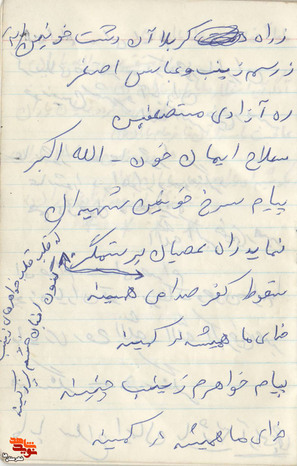 ز راه کربلا آن دشت خونین
ز رسم زینب و عباس اصغر
ره آزادی مستضعفین
سلاح ایمان خون - الله اکبر -
پیام سرخ خونین شهیدان
نماید راه عصیان بر ستمگر
سقوط کفر صدامی همینه
خدای ما همیشه در کمینه
پیام خواهرم زینب چنینه
خدای ما همیشه در کمینه